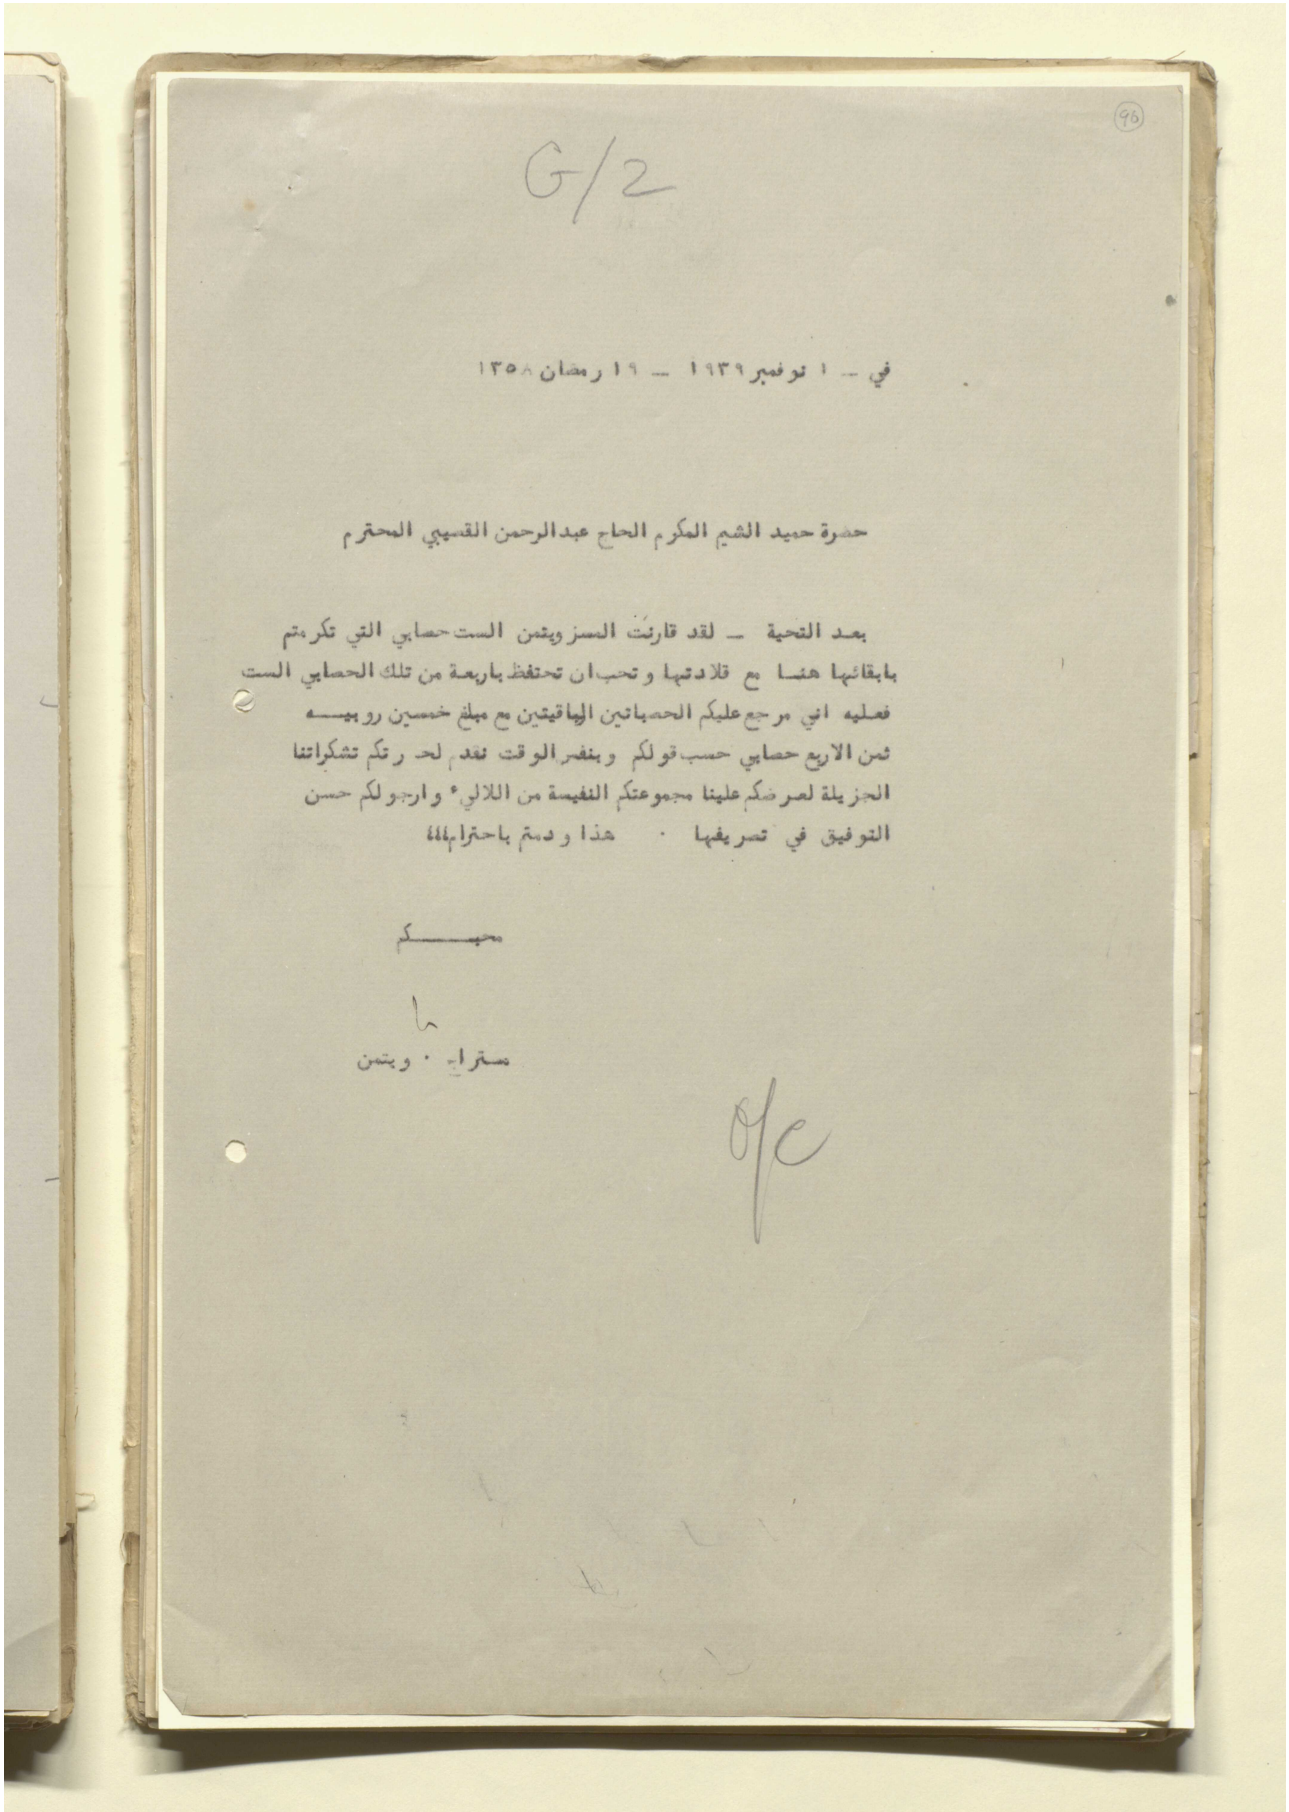 96
G/2
في – ١ نوفمبر ١٩٣٩ – ١٩ رمضان ١٣٥٨
حضرة حميد الشيم المكرم الحاج عبدالرحمن القصيبي المحترم
بعد التحية – لقد قارنت المسز ويتمن الست حصابي التي تكرمتم
بابقائها هنا مع قلادتها وتحب ان تحتفظ باربعة من تلك الحصابي الست
فعليه اني مرجع عليكم الحصباتين الباقيتين مع مبلغ خمسين روبيـــه
ثمن الاربع حصابي حسب قولكم وبنفس الوقت نقدم لحضرتكم تشكراتنا
الجزيلة لعرضكم علينا مجموعتكم النفيسة من اللاليء وارجولكم حسن
التوفيق في تصريفها ٠ هذا ودمتم باحترام،،،
محبـــــكم
مستر ٠ ويتمن
O/C